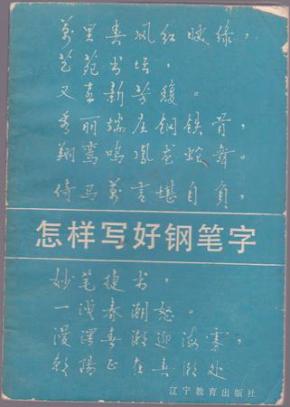 萬里风红映绿，
艺苑书坛，
又喜新芳馥。
秀丽端庄钢铁骨，
翔鸾鸣凤龙蛇舞。
倚马萬言堪自负，
怎样写好钢笔字
妙笔捷书，
一春潮怒。
春潮迎海
朝阳正在潮处
辽宁教育出版社